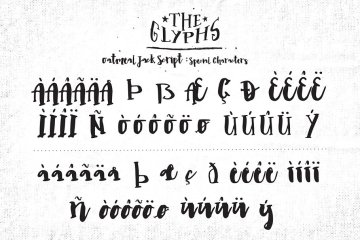 THE
GLYPHS
oatmeal Jack Script : Special Characters
ÀÁÂÃÄÅ Þ ß Æ Ç Ð ÈÉÊË
ÌÍÎÏ Ñ òóôõöø ùúûü Ý
àáâãäå þ æ ç ð èéêë ìíîï
ñ òóôõöø ùúûü ý